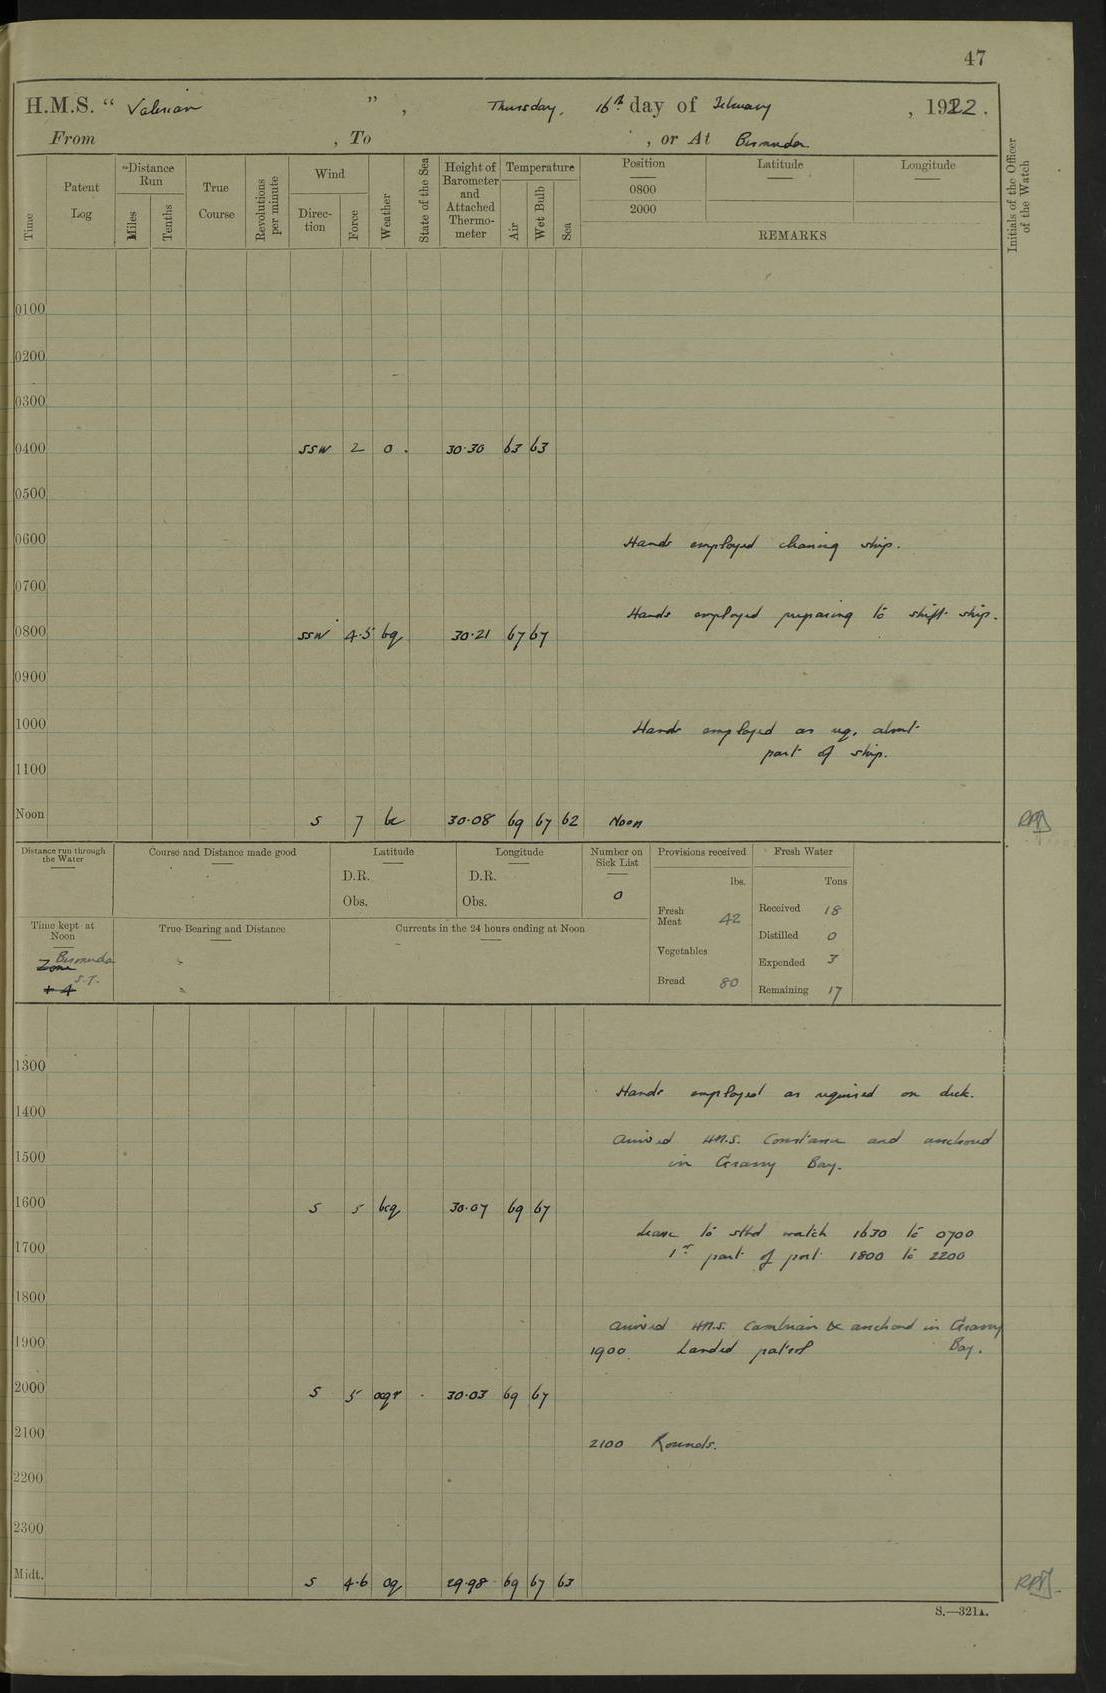 47
H.M.S. “ Valerian ” , Thursday, 16th day of February , 1922 .
From , To , or At Bermuda
Time
Patent Log
Distance Run
Miles
Tenths
True Course
Revolutions per minute
Wind
Direc-tion
Force
Weather
State of the Sea
Height of Barometer and Attached Thermo-meter
Temperature
Air
Wet Bulb
Sea
Position
0800
2000
Latitude
Longitude
REMARKS
Initials of the Officer of the Watch
0100
0200
0300
0400 SSW 2 o . 30·30 63 63
0500
0600 Hands employed cleaning ship.
0700
Hands employed preparing to shift ship.
0800 SSW 4·5 bq 30·21 67 67
0900
1000 Hands employed as req. about
part of ship.
1100
Noon S 7 bc 30·08 69 67 62 Noon
Distance run through the Water
Course and Distance made good
Latitude
D.R.
Obs.
Longitude
D.R.
Obs.
Number on Sick List
0
Provisions received
lbs.
Fresh Meat 42
Vegetables
Bread 80
Fresh Water
Tons
Received 18
Distilled 0
Expended 3
Remaining 17
Time kept at Noon
Bermuda
Zone S.T.
+ 4
True Bearing and Distance
Currents in the 24 hours ending at Noon
1300
Hands employed as required on deck.
1400
Arrived H.M.S. Constance and anchored
1500
in Grassy Bay.
1600 S 5 bcq 30·07 69 67
Leave to stbd watch 1630 to 0700
1700
1st part of port 1800 to 2200
1800
Arrived H.M.S. Cambrian & anchored in Grassy
Bay.
1900
1900 Landed patrol
2000 S 5 ocqr 30·03 69 67
2100
2100 Rounds.
2200
2300
Midt. S 4·6 oq 29·98 69 67 63
S.—321A.